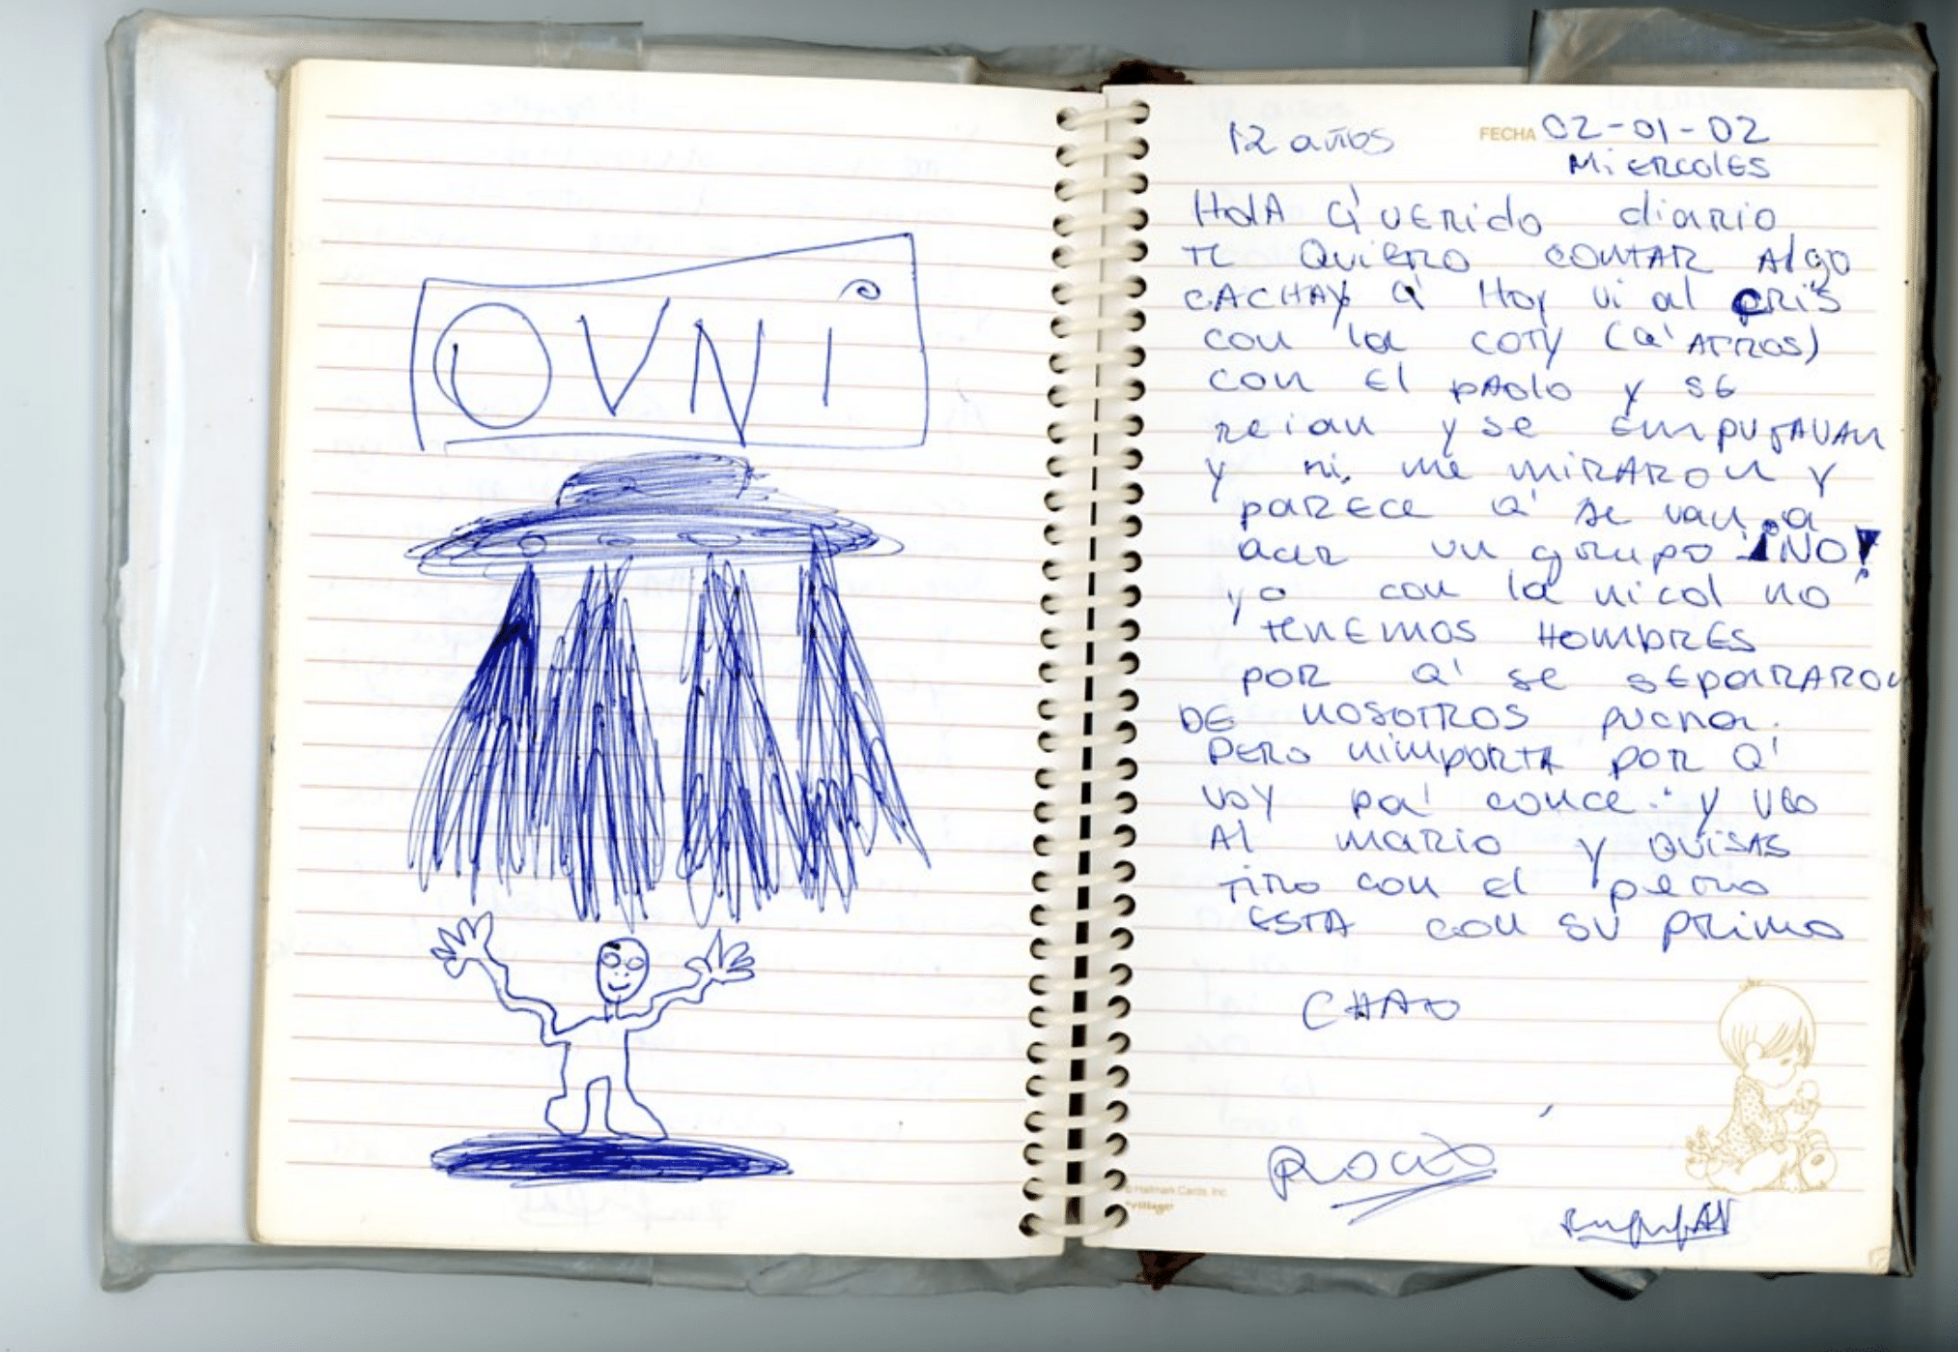 OVNI
12 años
FECHA 02-01-02
MiERCOlES
HOlA Q' UERido diario
TE QuiERO CONTAR Algo
CACHAY Q' Hoy vi al CRIS
con la COTY (Q' ATROS)
con El pAolo y SE
reian y se EmpuJAVAN
y ni, me miRARon y
paRECE Q' se van a
acer un grupo ¡NO!
yo con la nicol no
TENEMOS HOMBRES
poR Q' se sEpaRARON
DE NOSOTROS pucha.
PERO NIMPORTA POR Q'
voy pa' conce. y veo
Al mario y QUISAS
TiRO con el pero
ESTA con su primo
CHAO
Rocio
© Hallmark Cards, Inc.